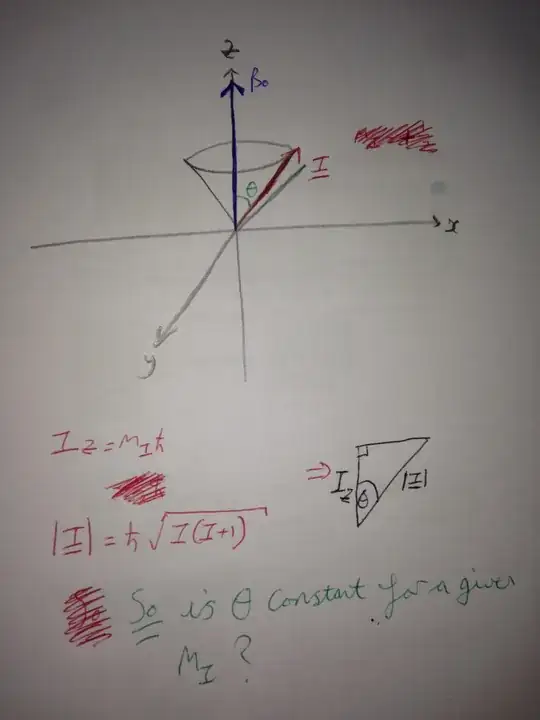 z
B₀
θ
I
x
y
I_z = M_I ħ
|I| = ħ √I(I+1)
⇒ I_z θ |I|
So is θ constant for a given
M_I ?